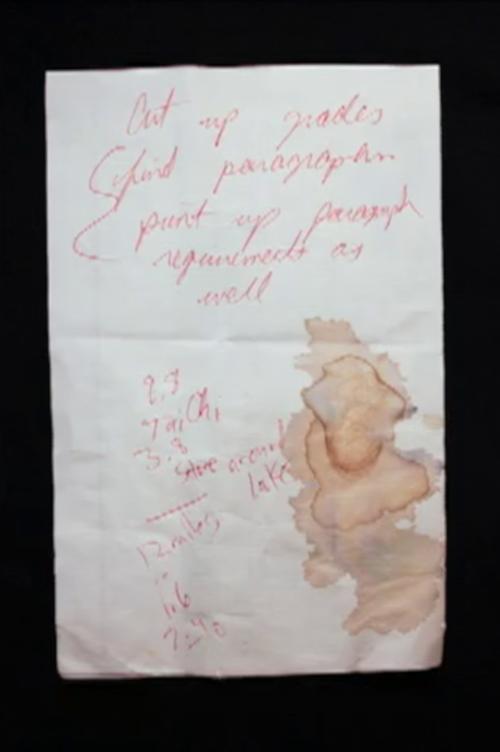 Cut up grades
find paragraphs
print up paragraph
requirements as
well
Tai Chi
3.8
around
lake
12 miles
1.6